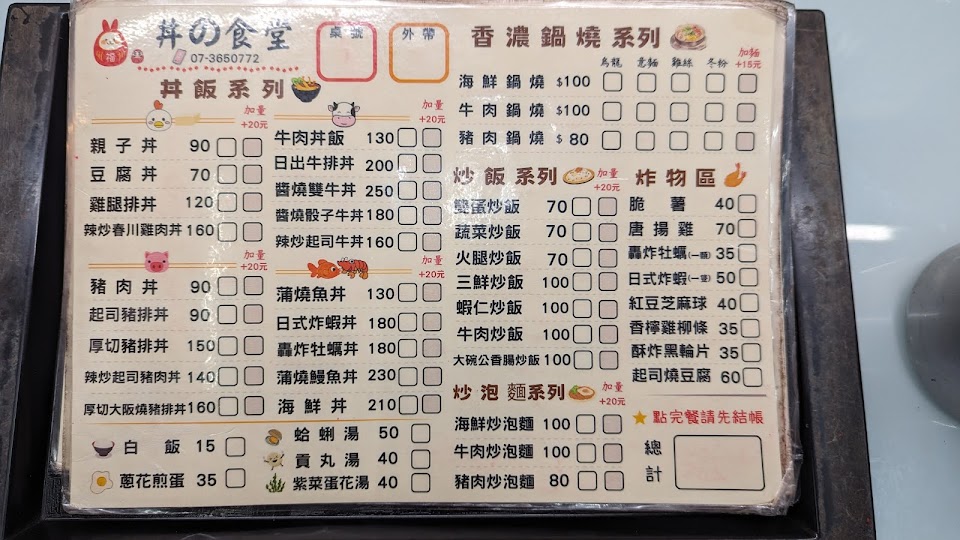 丼の食堂
07-3650772
桌號
外帶
福
丼飯系列
加量
+20元
親子丼 90
豆腐丼 70
雞腿排丼 120
辣炒春川雞肉丼 160
加量
+20元
豬肉丼 90
起司豬排丼 90
厚切豬排丼 150
辣炒起司豬肉丼 140
厚切大阪燒豬排丼 160
加量
+20元
牛肉丼飯 130
日出牛排丼 200
醬燒雙牛丼 250
醬燒骰子牛丼 180
辣炒起司牛丼 160
加量
+20元
蒲燒魚丼 130
日式炸蝦丼 180
轟炸牡蠣丼 180
蒲燒鰻魚丼 230
海鮮丼 210
白飯 15
蔥花煎蛋 35
蛤蜊湯 50
貢丸湯 40
紫菜蛋花湯 40
香濃鍋燒系列
烏龍 意麵 雞絲 冬粉 加麵
+15元
海鮮鍋燒 $100
牛肉鍋燒 $100
豬肉鍋燒 $80
炒飯系列
加量
+20元
雙蛋炒飯 70
蔬菜炒飯 70
火腿炒飯 70
三鮮炒飯 100
蝦仁炒飯 100
牛肉炒飯 100
大碗公香腸炒飯 100
炒泡麵系列
加量
+20元
海鮮炒泡麵 100
牛肉炒泡麵 100
豬肉炒泡麵 80
炸物區
脆薯 40
唐揚雞 70
轟炸牡蠣(一顆) 35
日式炸蝦(一隻) 50
紅豆芝麻球 40
香檸雞柳條 35
酥炸黑輪片 35
起司燒豆腐 60
點完餐請先結帳
總計